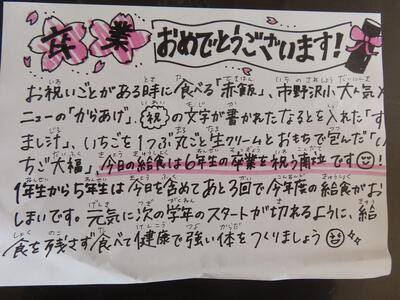 卒業おめでとうございます!
お祝いごとがある時に食べる「赤飯」、市野沢小大人気メ
ニューの「からあげ」、祝の文字が書かれたなるとを入れた「す
まし汁」、いちごを1つぶ丸ごと生クリームとおもちで包んだ「い
ちご大福」、今日の給食は6年生の卒業を祝う献立です
1年生から5年生は今日を含めてあと3回で今年度の給食がお
しまいです。元気に次の学年のスタートが切れるように、給
食を残さず食べて健康で強い体をつくりましょう